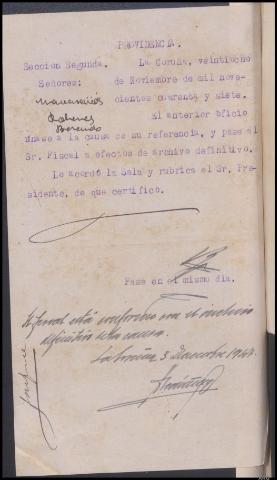 PROVIDENCIA.
Seccion Segunda. La Coruña, veintiocho
Señores: de Noviembre de mil nove-
cientos cuarenta y siete.
El anterior oficio
únase a la causa de su referencia, y pase al
Sr. Fiscal a efectos de archivo definitivo.
Lo acordó la Sala y rubrica el Sr. Pre-
sidente, de que certifico.
Pasa en el mismo dia.
El fiscal está conforme con el archivo
definitivo de la causa.
La Coruña 3 diciembre 1947.